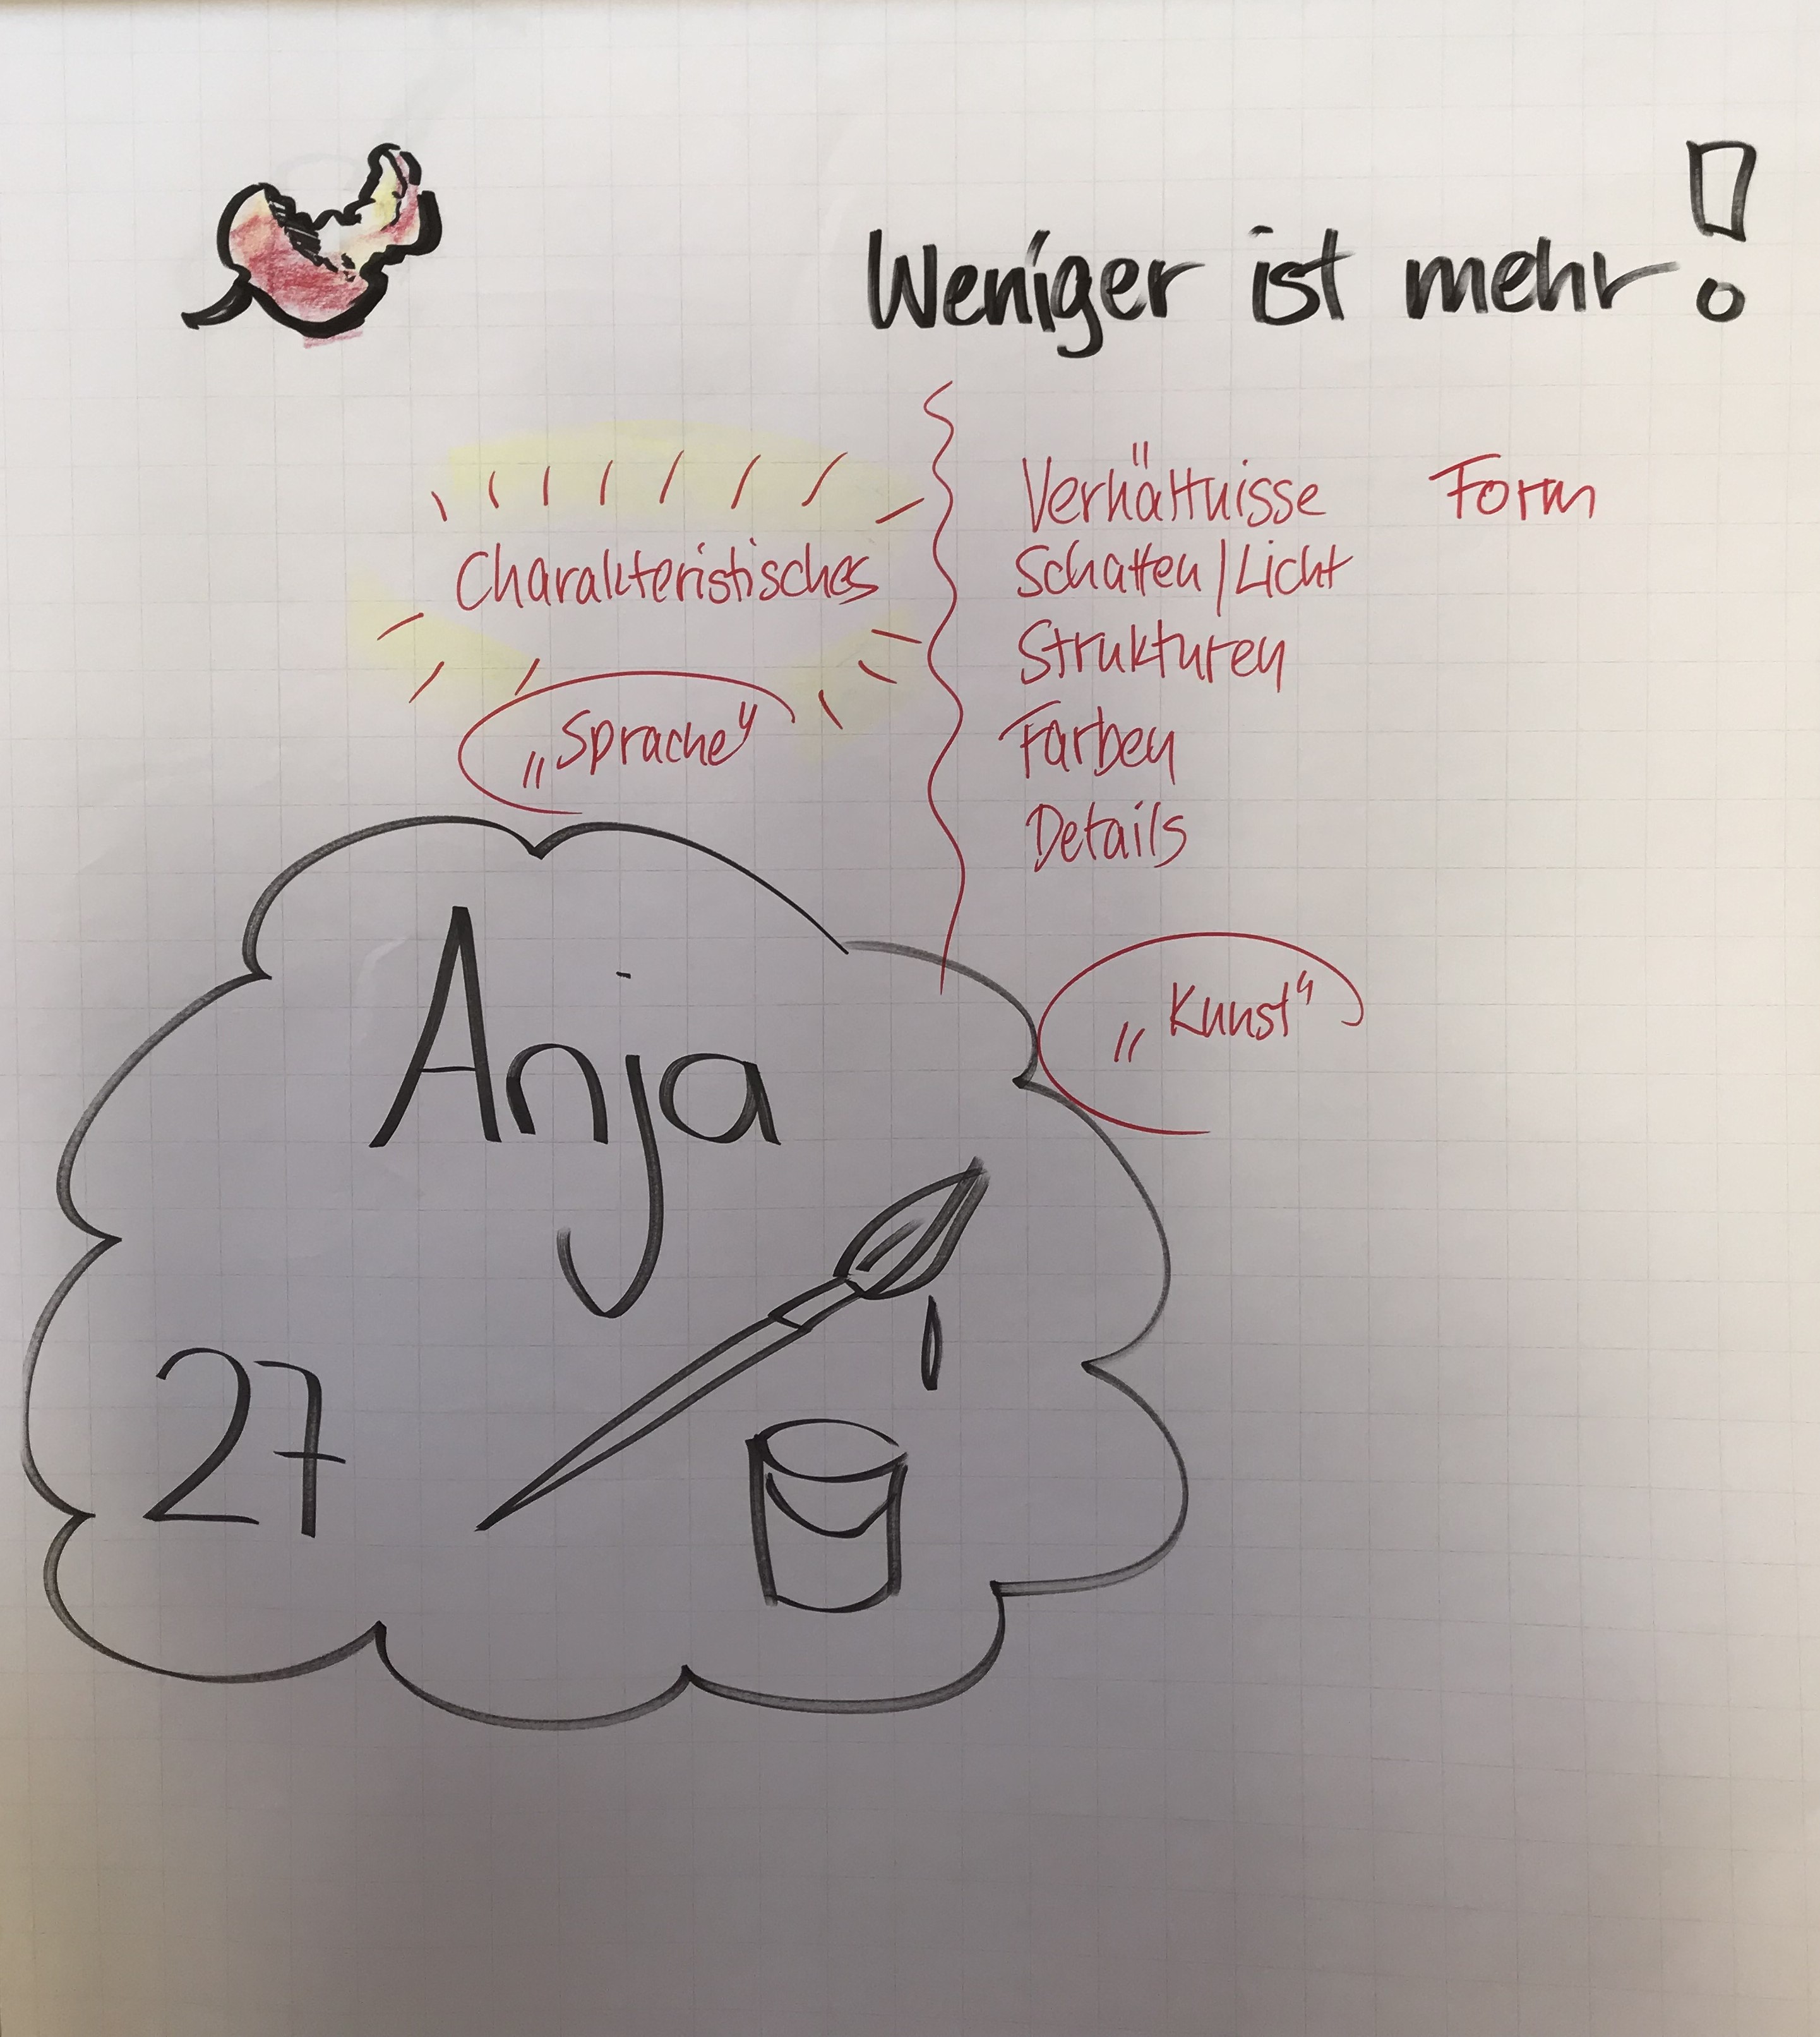 Weniger ist mehr!
Verhältnisse Form
Charakteristisches
Schatten/Licht
Strukturen
„Sprache“
Farben
Details
„Kunst“
Anja
27